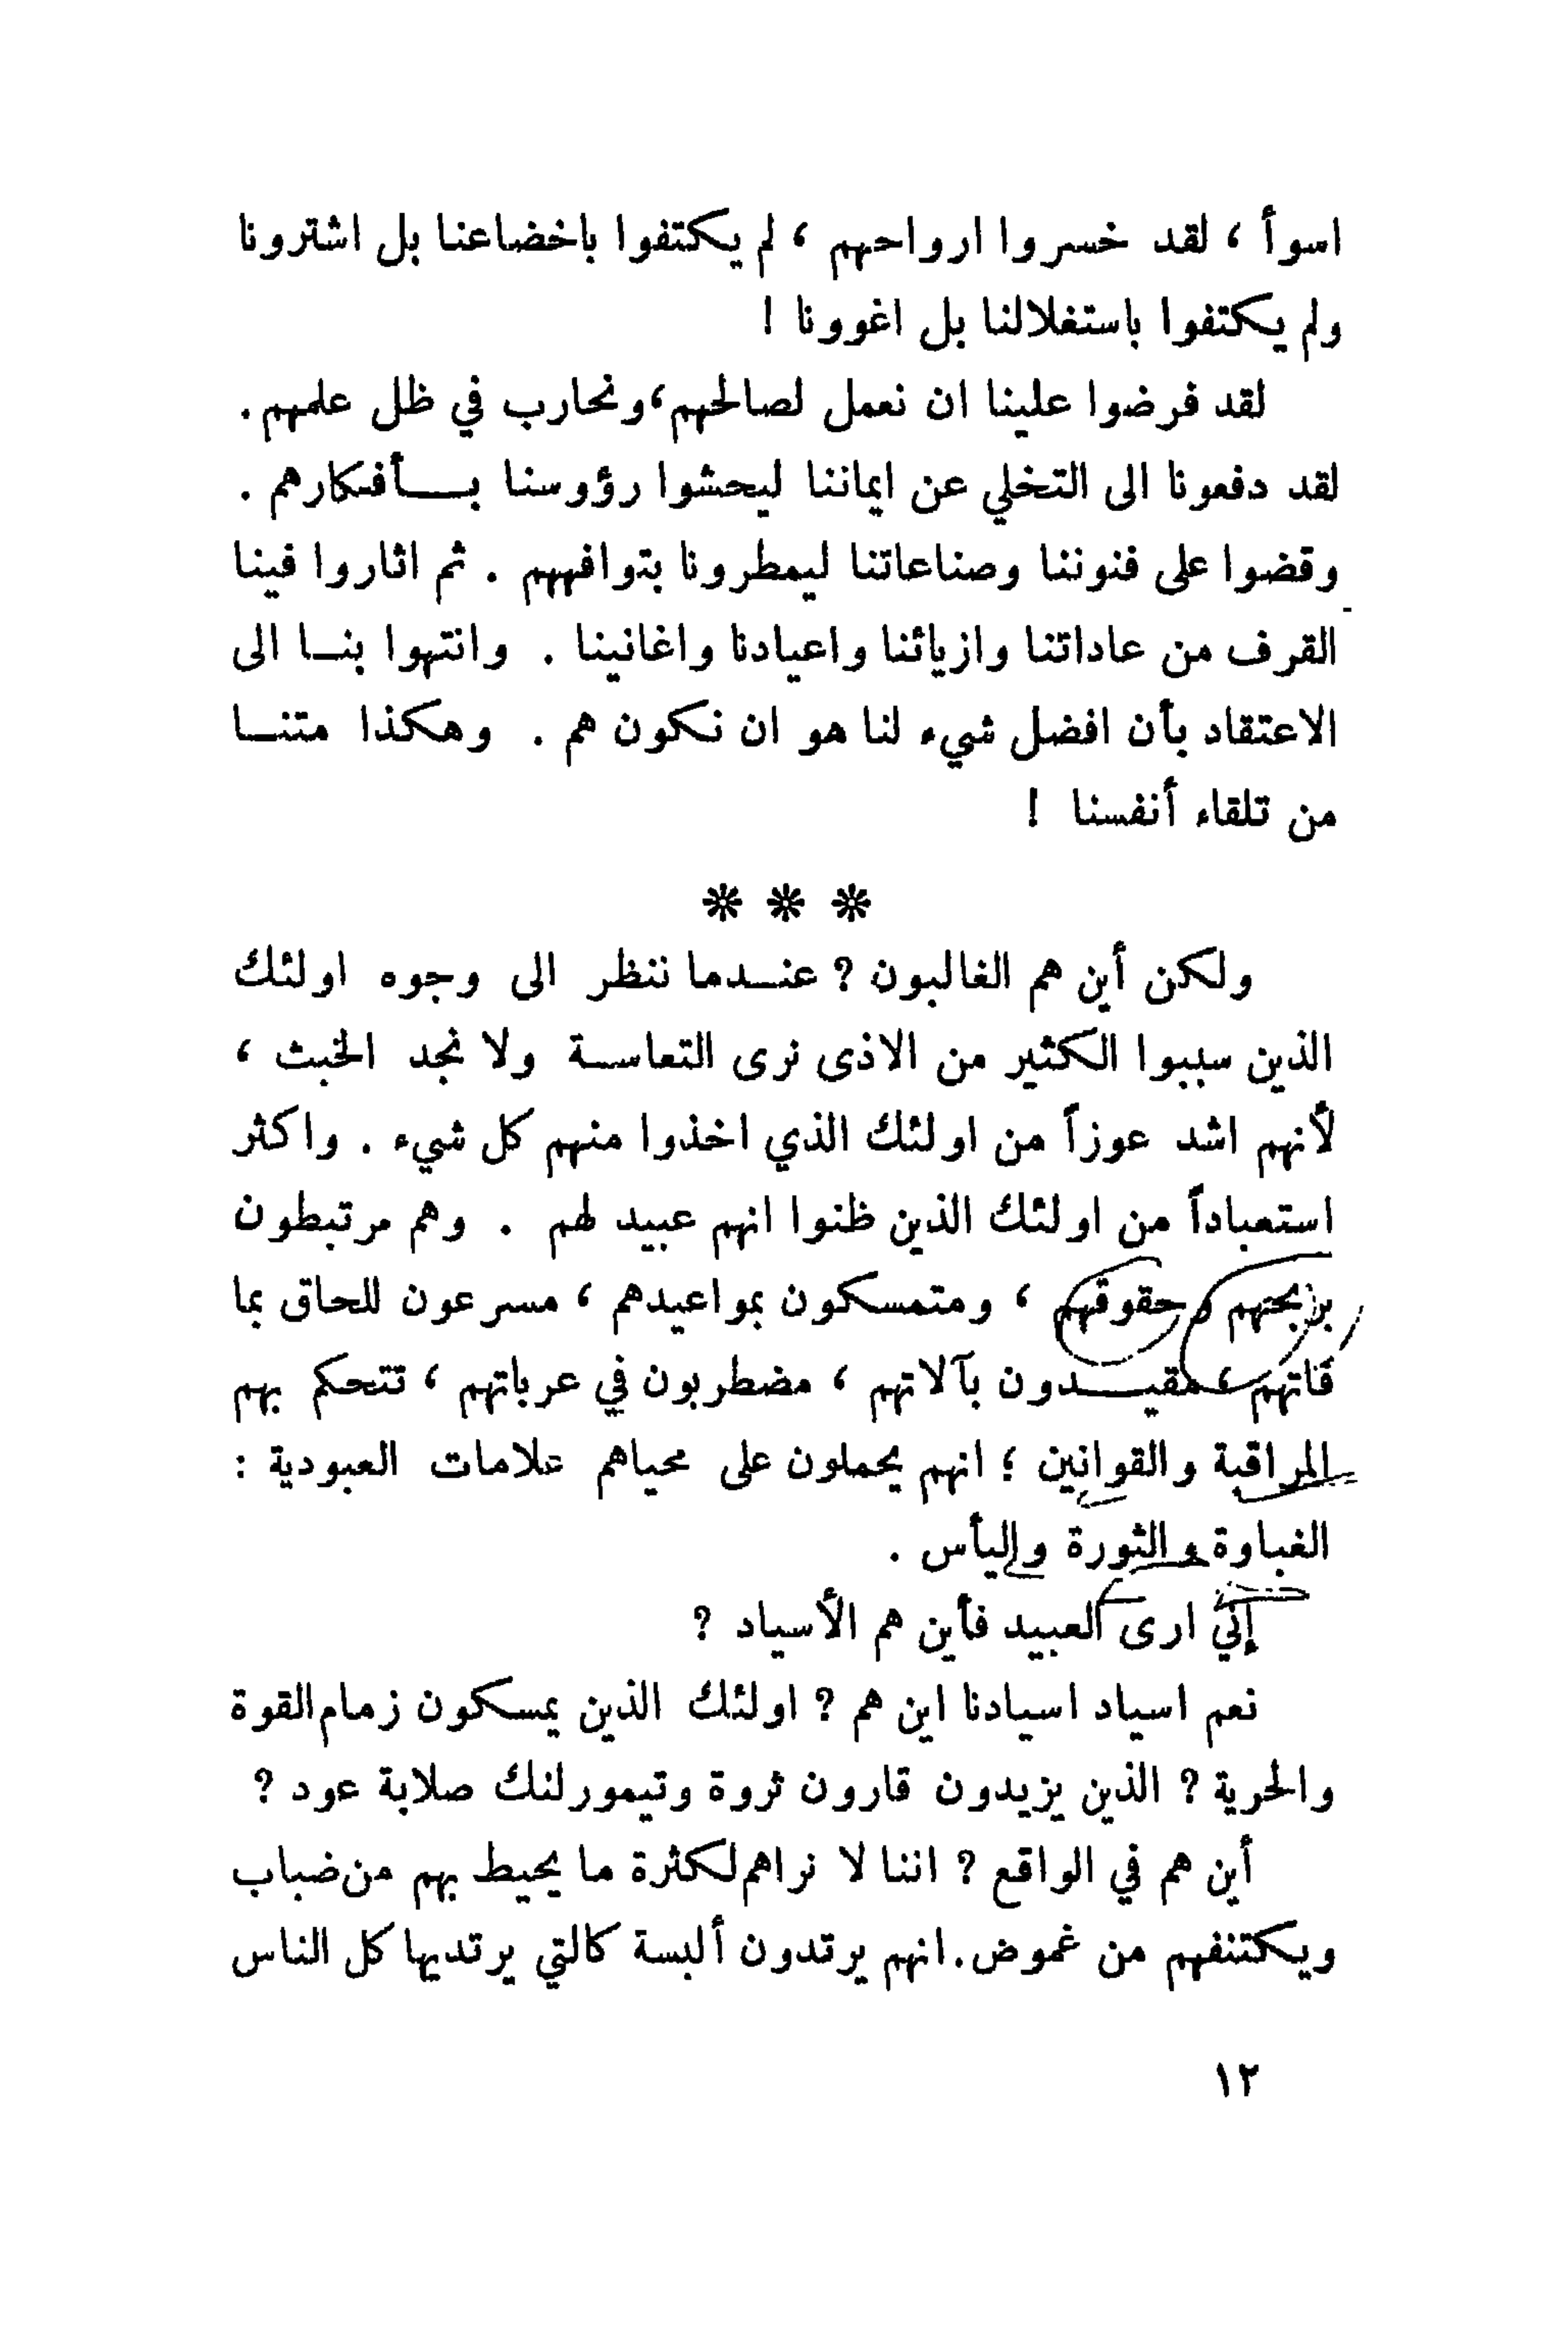 اسوأ ، لقد خسروا ارواحهم ، لم يكتفوا باخضاعنا بل اشترونا
ولم يكتفوا باستغلالنا بل اغوونا !
لقد فرضوا علينا ان نعمل لصالحهم، ونحارب في ظل علمهم .
لقد دفعونا الى التخلي عن ايماننا ليحشوا رؤوسنا بـأفكارهم .
وقضوا على فنوننا وصناعاتنا ليمطرونا بتوافههم . ثم اثاروا فينا
القرف من عاداتنا وازيائنا واعيادنا واغانينا . وانتهوا بنـا الى
الاعتقاد بأن افضل شيء لنا هو ان نكون هم . وهكذا متنـا
من تلقاء أنفسنا !
* * *
ولكن أين هم الغالبون ? عنـدما ننظر الى وجوه اولئك
الذين سببوا الكثير من الاذى نرى التعاسـة ولا نجد الخبث ،
لأنهم اشد عوزاً من اولئك الذي اخذوا منهم كل شيء . واكثر
استعباداً من اولئك الذين ظنوا انهم عبيد لهم . وهم مرتبطون
بربحهم وحقوقهم ، ومتمسكون بمواعيدهم ، مسرعون للحاق بما
فاتهم ، مقيـدون بآلاتهم ، مضطربون في عرباتهم ، تتحكم بهم
المراقبة والقوانين ؛ انهم يحملون على محياهم علامات العبودية :
الغباوة والثورة واليأس .
إني ارى العبيد فأين هم الأسياد ?
نعم اسياد اسيادنا اين هم ? اولئك الذين يمسكون زمام القوة
والحرية ? الذين يزيدون قارون ثروة وتيمورلنك صلابة عود ?
أين هم في الواقع ? اننا لا نراهم لكثرة ما يحيط بهم من ضباب
ويكتنفهم من غموض. انهم يرتدون ألبسة كالتي يرتديها كل الناس
١٢